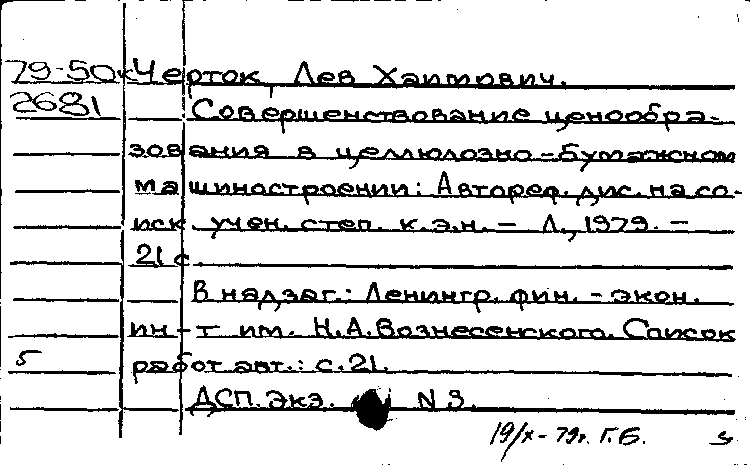 79-50к Черток, Лев Хаимович.
2681 Совершенствование ценообра-
зования в целлюлозно-бумажном
машиностроении: Автореф. дис. на со-
иск. учен. степ. к.э.н. – Л., 1979. –
21 с.
В надзаг.: Ленингр. фин.-экон.
ин-т им. Н.А.Вознесенского. Список
5 работ авт.: с.21.
ДСП. Экз. N 3.
19/х-79г. Г.Б.